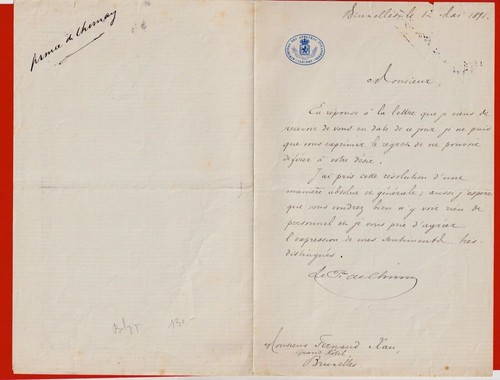 prince de Chimay
Bruxelles le 12 Mai 1891.
Monsieur,
En réponse à la lettre que je viens de
recevoir de vous en date de ce jour, je ne puis
que vous exprimer le regret de ne pouvoir
déférer à votre désir.
J'ai pris cette résolution d'une
manière absolue et générale; aussi j'espère
que vous voudrez bien n'y voir rien de
personnel et je vous prie d'agréer
l'expression de mes sentiments très
distingués.
Le Pce de Chimay
Monsieur Fernand Xau,
Grand Hôtel
Bruxelles
130-